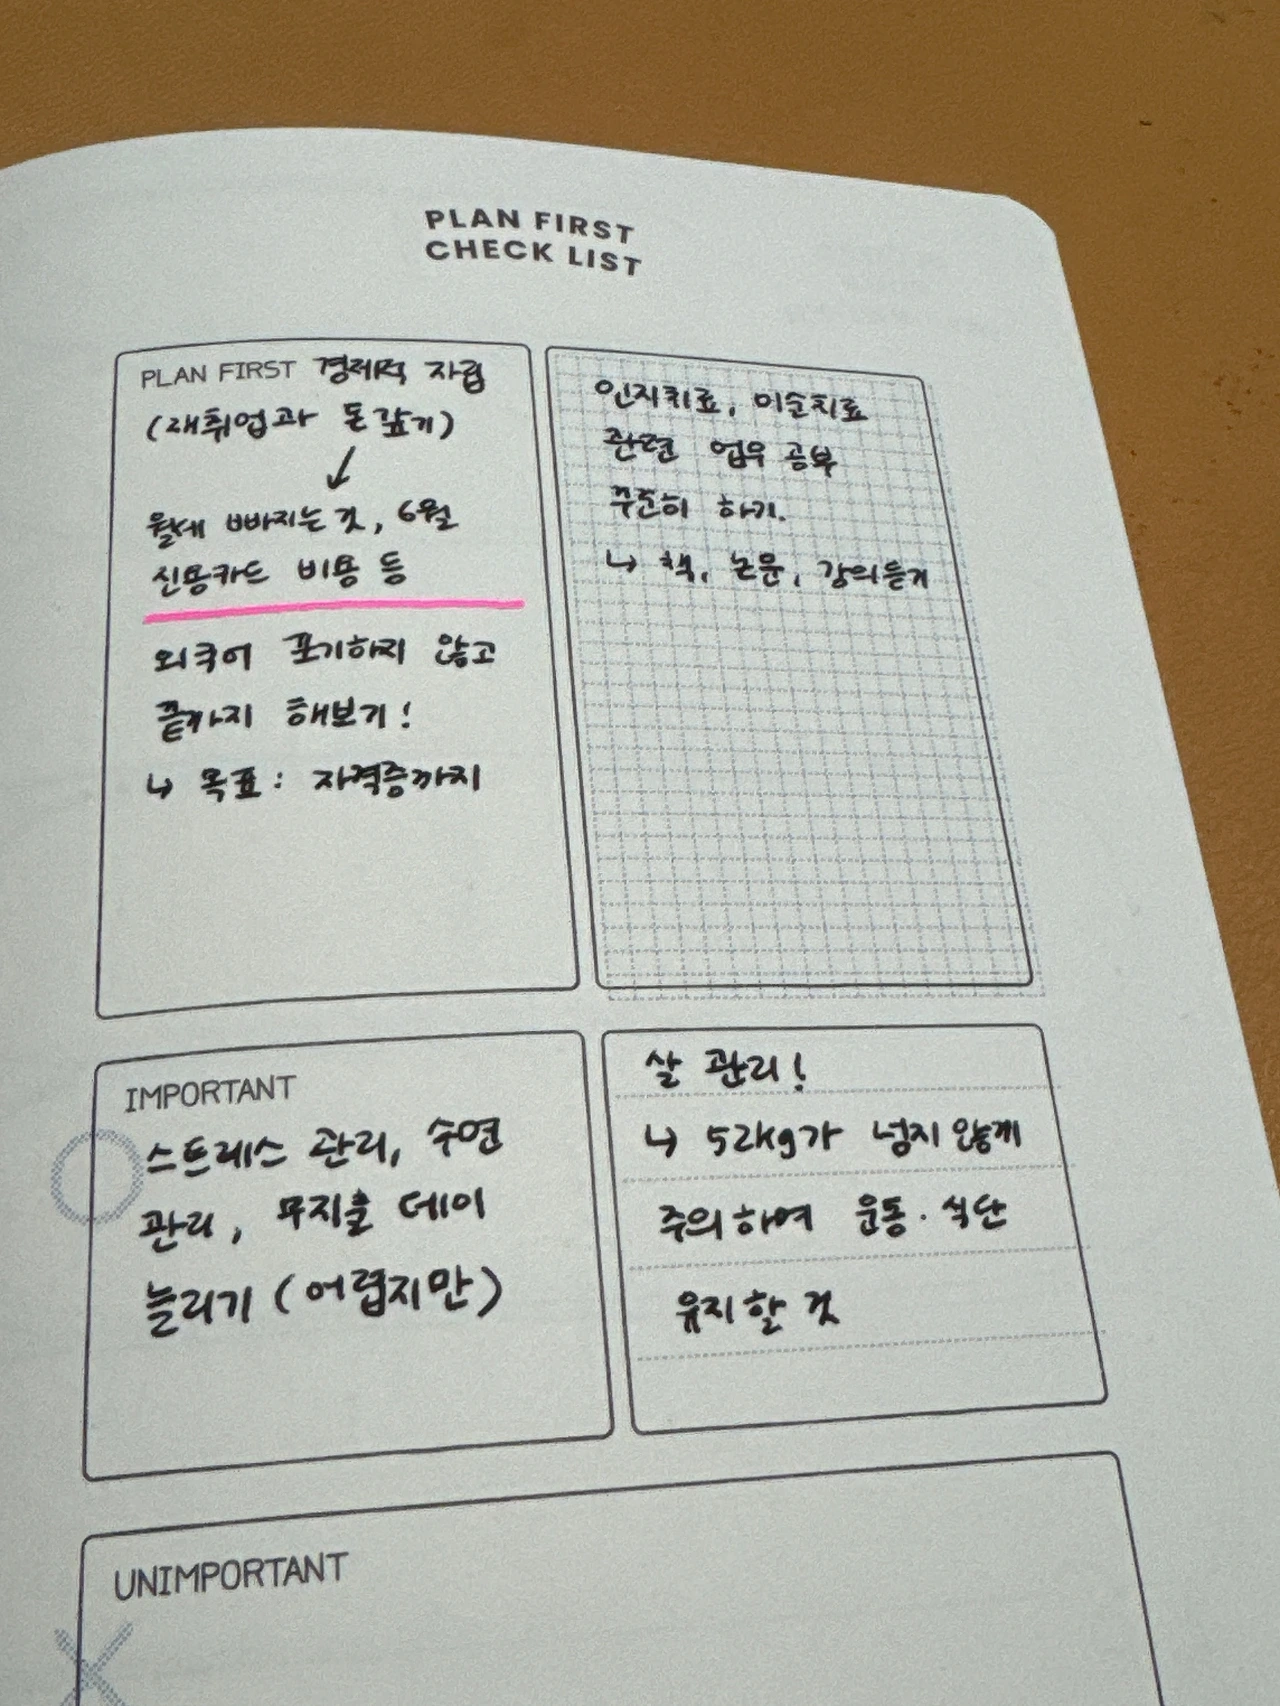 PLAN FIRST
CHECK LIST
PLAN FIRST 경제적 자립
(재취업과 돈 갚기)
↓
월세 빠지는 것, 6월
신용카드 비용 등
외국어 포기하지 않고
끝까지 해보기!
↳ 목표: 자격증까지
인지치료, 미술치료
관련 업무 공부
꾸준히 하기.
↳ 책, 논문, 강의듣기
IMPORTANT
스트레스 관리, 수면
관리, 무지출 데이
늘리기 (어렵지만)
살 관리!
↳ 52kg가 넘지 않게
주의하여 운동·식단
유지할 것
UNIMPORTANT